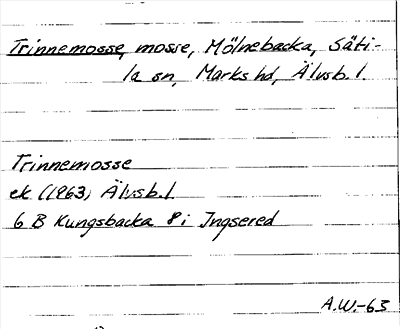 Trinnemosse, mosse, Mölnebacka, Säti-
la sn, Marks hd, Älvsb. l.
Trinnemosse
ek (1963) Älvsb. l
6 B Kungsbacka 8 i Ingsered
A.W.-63